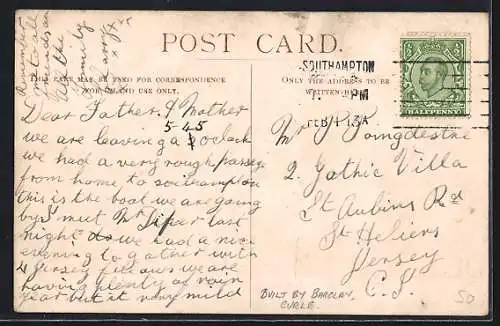 POST CARD.
THIS PART MAY BE USED FOR CORRESPONDENCE
FOR INLAND USE ONLY.
ONLY THE ADDRESS TO BE
WRITTEN HERE.
SOUTHAMPTON
PM
FEB 13A
HALFPENNY
Remember
me to all
friends
all the
family
Harry
x x x
Dear Father & Mother
5-45
we are leaving a oclock
we had a very rough passage
from home to southampton
this is the boat we are going
by I met Mr last
night we had a nice
evening to gather with
4 Jersey fellows we are
having plenty of rain
year but it very mild
Mr J Poingdestre
2. Gothic Villa
St Aubins Rd
St Heliers
Jersey
C.I.
BUILT BY BARCLAY,
CURLE.
50